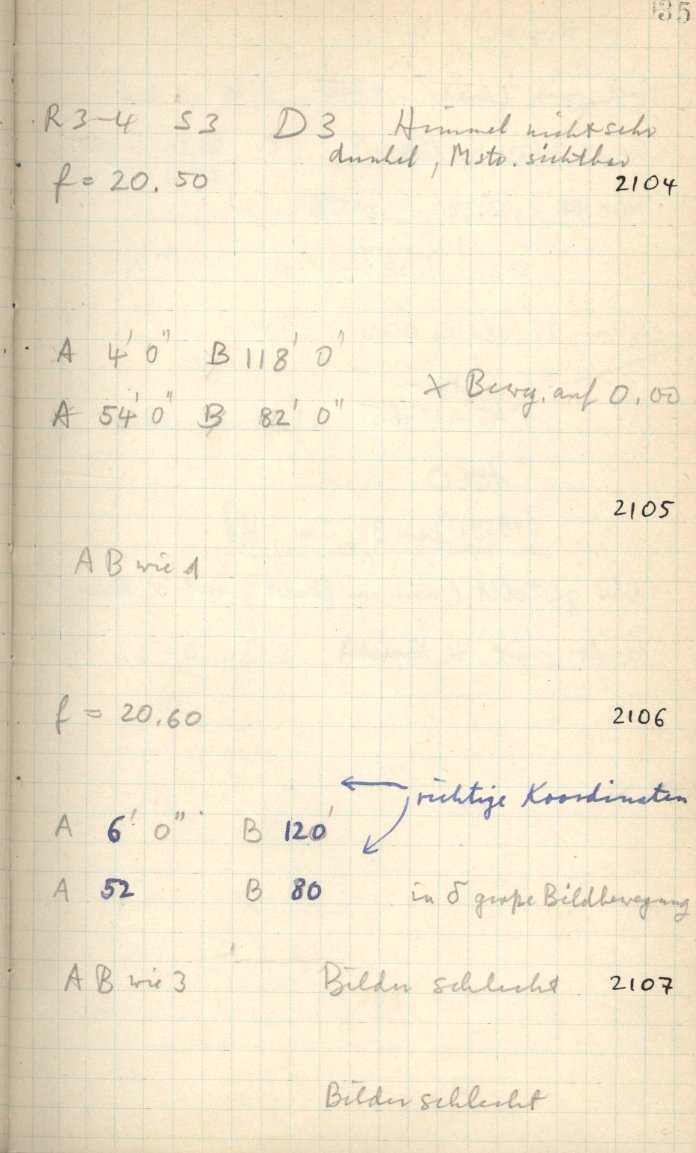 35
R 3-4 S 3 D 3 Himmel nicht sehr
dunkel, Mstr. sichtbar
f = 20.50 2104
A 4' 0" B 118' 0'
x Beweg. auf 0.00
A 54' 0" B 82' 0"
2105
A B wie 1
f = 20.60 2106
richtige Koordinaten
A 6' 0" B 120'
A 52 B 80 in δ große Bildbewegung
A B wie 3 Bilder schlecht 2107
Bilder schlecht